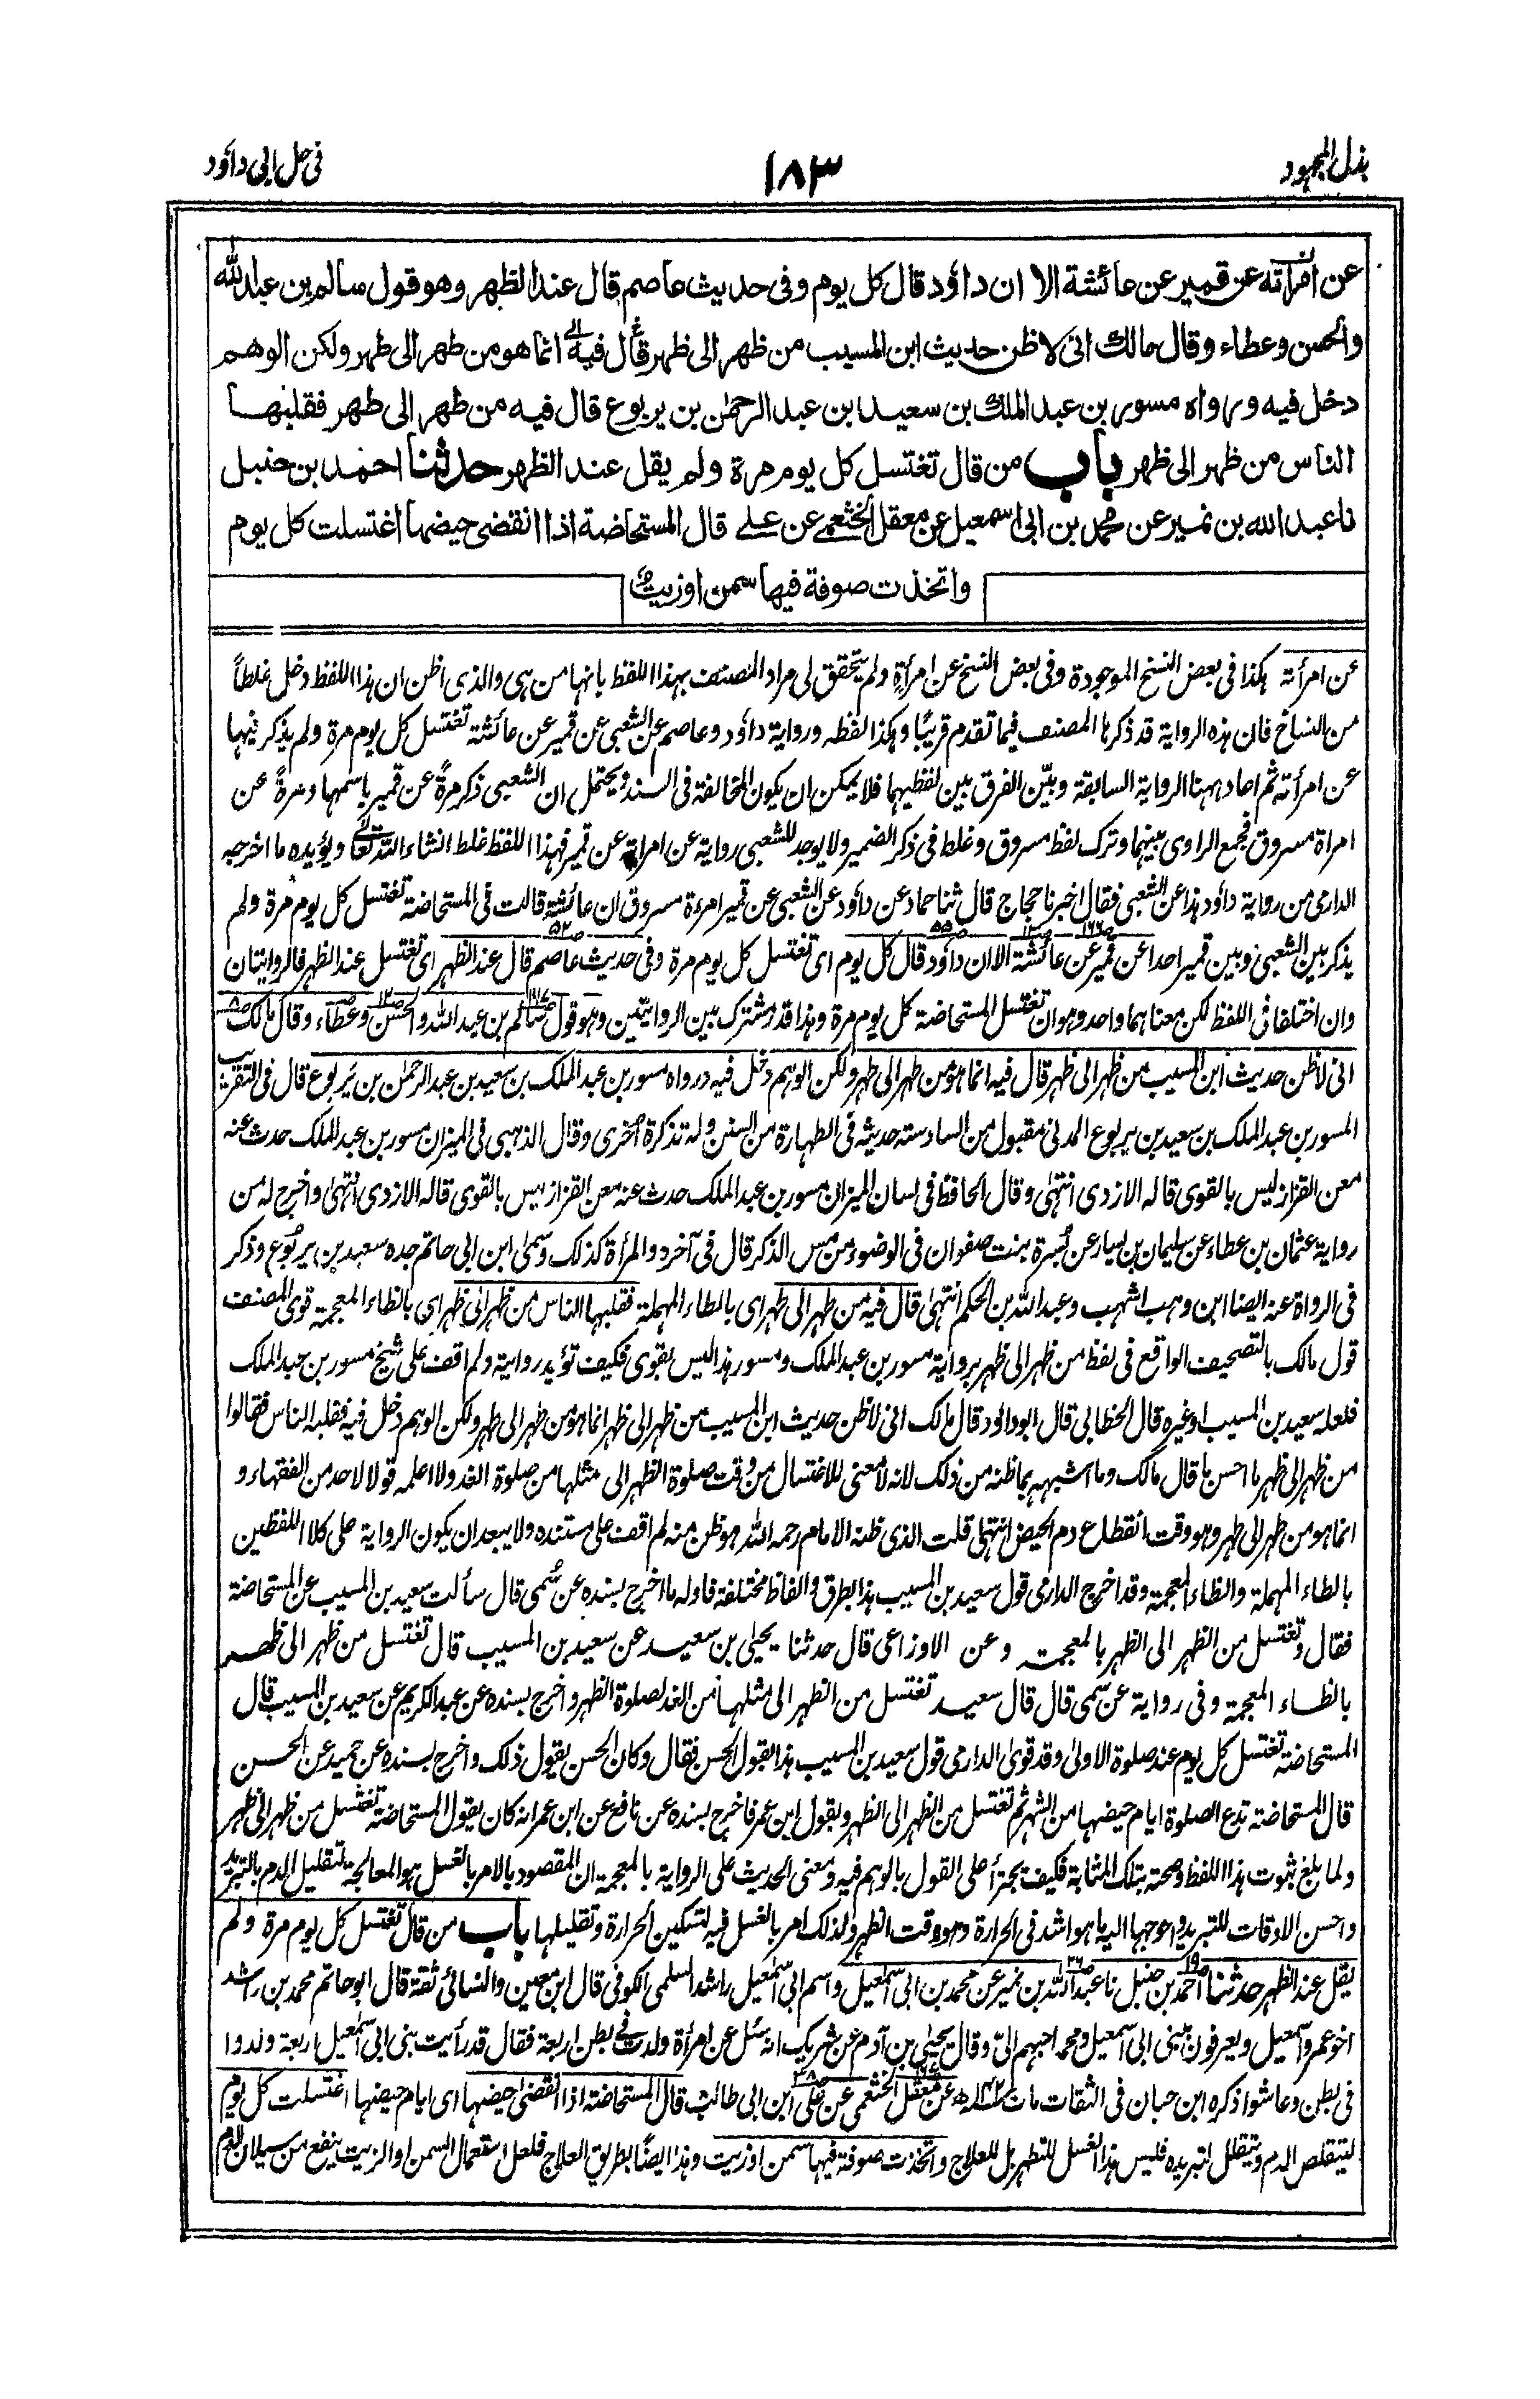 بذل المجهود
١٨٣
فى حل ابى داؤد
عن امرأته عن قمير عن عائشة الا ان داؤد قال كل يوم وفى حديث عاصم قال عند الظهر وهو قول سالم بن عبد الله
والحسن وعطاء وقال مالك انى لاظن حديث ابن المسيب من ظهر الى ظهر قال فيه انما هو من طهر الى طهر ولكن الوهم
دخل فيه ورواه مسور بن عبد الملك بن سعيد ابن عبد الرحمٰن بن يربوع قال فيه من طهر الى طهر فقلبها
الناس من ظهر الى ظهر باب من قال تغتسل كل يوم مرة ولم يقل عند الظهر حدثنا احمد بن حنبل
نا عبد الله بن نمير عن محمد بن ابى اسمعيل عن معقل الخثعمى عن على قال المستحاضة اذا انقضى حيضها اغتسلت كل يوم
واتخذت صوفة فيها سمن او زيت
عن امرأته هكذا فى بعض النسخ الموجودة وفى بعض النسخ عن امرأة ولم يتحقق لى مراد المصنف بهذا اللفظ بانها من هى والذى اظن ان هذا اللفظ دخل غلطاً
من النساخ فان هذه الرواية قد ذكرها المصنف فيما تقدم قريبًا وهكذا لفظه ورواية داؤد وعاصم عن الشعبى عن قمير عن عائشة تغتسل كل يوم مرة ولم يذكر فيها
عن امرأته ثم اعاد ههنا الرواية السابقة وبيّن الفرق بين لفظيهما فلا يمكن ان يكون المخالفة فى السند ويحتمل ان الشعبى ذكر مرةً عن قمير باسمها ومرةً عن
امراة مسروق فجمع الراوى بينهما وترك لفظ مسروق وغلط فى ذكر الضمير ولا يوجد للشعبى رواية عن امراة عن قمير فهذا اللفظ غلط انشاء الله تعالى ويؤيده ما اخرجه
الدارمى من رواية داؤد هذا عن الشعبى فقال اخبرنا حجاج قال ثنا حماد عن داؤد عن الشعبى عن قمير امرءة مسروق ان عائشة قالت فى المستحاضة تغتسل كل يوم مرة ولم
يذكر بين الشعبى وبين قمير احدا عن قمير عن عائشة الا ان داؤد قال كل يوم اى تغتسل كل يوم مرة وفى حديث عاصم قال عند الظهر اى تغتسل عند الظهر فالروايتان
وان اختلفا فى اللفظ لكن معناهما واحد وهو ان تغتسل المستحاضة كل يوم مرة وهذا قدر مشترك بين الروايتين وهو قول سالم بن عبد الله والحسن وعطاء وقال مالك
انى لاظن حديث ابن المسيب من ظهر الى ظهر قال فيه انما هو من طهر الى طهر ولكن الوهم دخل فيه ورواه مسور بن عبد الملك بن سعيد بن عبد الرحمٰن بن يربوع قال فى التقريب
المسور بن عبد الملك بن سعيد بن يربوع المدنى مقبول من السادسة حديثه فى الطهارة من السنن وله تذكرة اخرى وقال الذهبى فى الميزان مسور بن عبد الملك حدث عنه
معن القزاز ليس بالقوى قاله الازدى انتهىٰ وقال الحافظ فى لسان الميزان مسور بن عبد الملك حدث عنه معن القزاز ليس بالقوى قاله الازدى انتهىٰ واخرج له من
رواية عثمان بن عطاء عن سليمان بن يسار عن بُسرة بنت صفوان فى الوضوء من مس الذكر قال فى آخره والمرأة كذلك وسمىٰ ابن ابى حاتم جده سعيد بن يربوع وذكر
فى الرواة عنه ايضا ابن وهب اشهب وعبد الله بن الحكم انتهىٰ قال فيه من طهر الى طهر اى بالطاء المهملة فقلبها الناس من ظهر الى ظهر اى بالظاء المعجمة قوى المصنف
قول مالك بالتصحيف الواقع فى لفظ من ظهر الى ظهر برواية مسور بن عبد الملك ومسور هذا ليس بقوى فكيف تؤيد روايته ولم اقف على شيخ مسور بن عبد الملك
فلعله سعيد بن المسيب او غيره قال الخطابى قال ابو داؤد قال مالك انى لاظن حديث ابن المسيب من ظهر الى ظهر انما هو من طهر الى طهر ولكن الوهم دخل فيه فقلبه الناس فقالوا
من ظهر الى ظهر ما احسن ما قال مالك وما اشبهه بما ظنه من ذلك لانه لا معنى للاغتسال من وقت صلوة الظهر الى مثلها من صلوة الغد ولا اعلمه قولا لاحد من الفقهاء و
انما هو من طهر الى طهر وهو وقت انقطاع دم الحيض انتهىٰ قلت الذى ظنه الامام رحمه الله هو ظن منه لم اقف على مستنده ولا يبعد ان يكون الرواية على كلا اللفظين
بالطاء المهملة والظاء المعجمة وقد اخرج الدارمى قول سعيد بن المسيب هذا بطرق والفاظ مختلفة فاوله ما اخرج بسنده عن سُمى قال سألت سعيد بن المسيب عن المستحاضة
فقال وتغتسل من الظهر الى الظهر بالمعجمة وعن الاوزاعى قال حدثنا يحيىٰ بن سعيد عن سعيد بن المسيب قال تغتسل من ظهر الى ظهر
بالظاء المعجمة وفى رواية عن سمى قال قال سعيد تغتسل من الظهر الى مثلها من الغد لصلوة الظهر واخرج بسنده عن عبد الكريم عن سعيد بن المسيب قال
المستحاضة تغتسل كل يوم عند صلوة الاولىٰ وقد قوىٰ الدارمى قول سعيد بن المسيب هذا بقول الحسن فقال وكان الحسن يقول ذلك واخرج بسنده عن حميد عن الحسن
قال المستحاضة تدع الصلوة ايام حيضها من الشهر ثم تغتسل من الظهر الى الظهر وبقول ابن عمر فاخرج بسنده عن نافع عن ابن عمر انه كان يقول المستحاضة تغتسل من ظهر الى ظهر
ولما بلغ ثبوت هذا اللفظ وصحته بتلك المثابة فكيف يجترأ على القول بالوهم فيه ومعنى الحديث على الرواية بالمعجمة ان المقصود بالامر بالغسل هو المعالجة لتقليل الدم بالتبريد
واحسن الاوقات للتبريد واحوجها اليه ما هو اشد فى الحرارة وهو وقت الظهر ولذلك امر بالغسل فيه لتسكين الحرارة وتقليلها باب من قال تغتسل كل يوم مرة ولم
يقل عند الظهر حدثنا احمد بن حنبل نا عبد الله بن نمير عن محمد بن ابى اسمٰعيل واسم ابى اسمٰعيل راشد السلمى الكوفى قال ابن معين والنسائى ثقة قال ابو حاتم محمد بن راشد
اخو عمر واسمعيل ويعرفون ببنى ابى اسمعيل ومحمد احبهم الىّ وقال يحيىٰ بن آدم عن شريك انه سئل عن امرأة ولدت فى بطن اربعة فقال قد رأيت بنى ابى اسمٰعيل اربعة ولدوا
فى بطن وعاشوا ذكره ابن حبان فى الثقات مات ١٤٢ھ عن معقل الخثعمى عن على ابن ابى طالب قال المستحاضة اذا انقضىٰ حيضها اى ايام حيضها اغتسلت كل يوم
ليتقلص الدم ويتقلل لتبريده فليس هذا الغسل للتطهر بل للعلاج واتخذت صوفة فيها سمن او زيت وهذا ايضًا بطريق العلاج فلعل استعمال السمن او الزيت ينفع من سيلان الدم